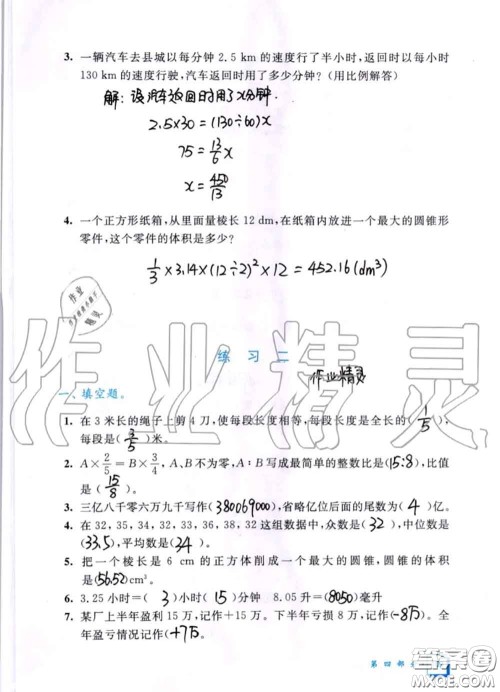 3. 一辆汽车去县城以每分钟 2.5 km 的速度行了半小时，返回时以每小时
130 km 的速度行驶，汽车返回时用了多少分钟？（用比例解答）
解：设汽车返回时用了x分钟.
2.5×30=(130÷60)x
75=13/6x
x=450/13
4. 一个正方形纸箱，从里面量棱长 12 dm，在纸箱内放进一个最大的圆锥形
零件，这个零件的体积是多少？
1/3×3.14×(12÷2)²×12=452.16(dm³)
作业
精灵
练 习 二
作业精灵
作业精灵
一、填空题。
1. 在 3 米长的绳子上剪 4 刀，使每段长度相等，每段长度是全长的（1/5），
每段是（3/5）米。
2. A×2/5=B×3/4，A、B不为零，A：B 写成最简单的整数比是（15:8），比值
是（15/8）。
3. 三亿八千零六万九千写作（380069000），省略亿位后面的尾数为（4）亿。
4. 在 32，35，34，32，33，36，38，32 这组数据中，众数是（32），中位数是
（33.5），平均数是（34）。
5. 把一个棱长是 6 cm 的正方体削成一个最大的圆锥，圆锥的体积是
（56.52）cm³。
6. 3.25 小时=（3）小时（15）分钟 8.05 升=（8050）毫升
7. 某厂上半年盈利 15 万，记作+15 万。下半年亏损 8 万，记作（-8万）。全
年盈亏情况记作（+7万）。
第 四 部 分
MXQE.COM